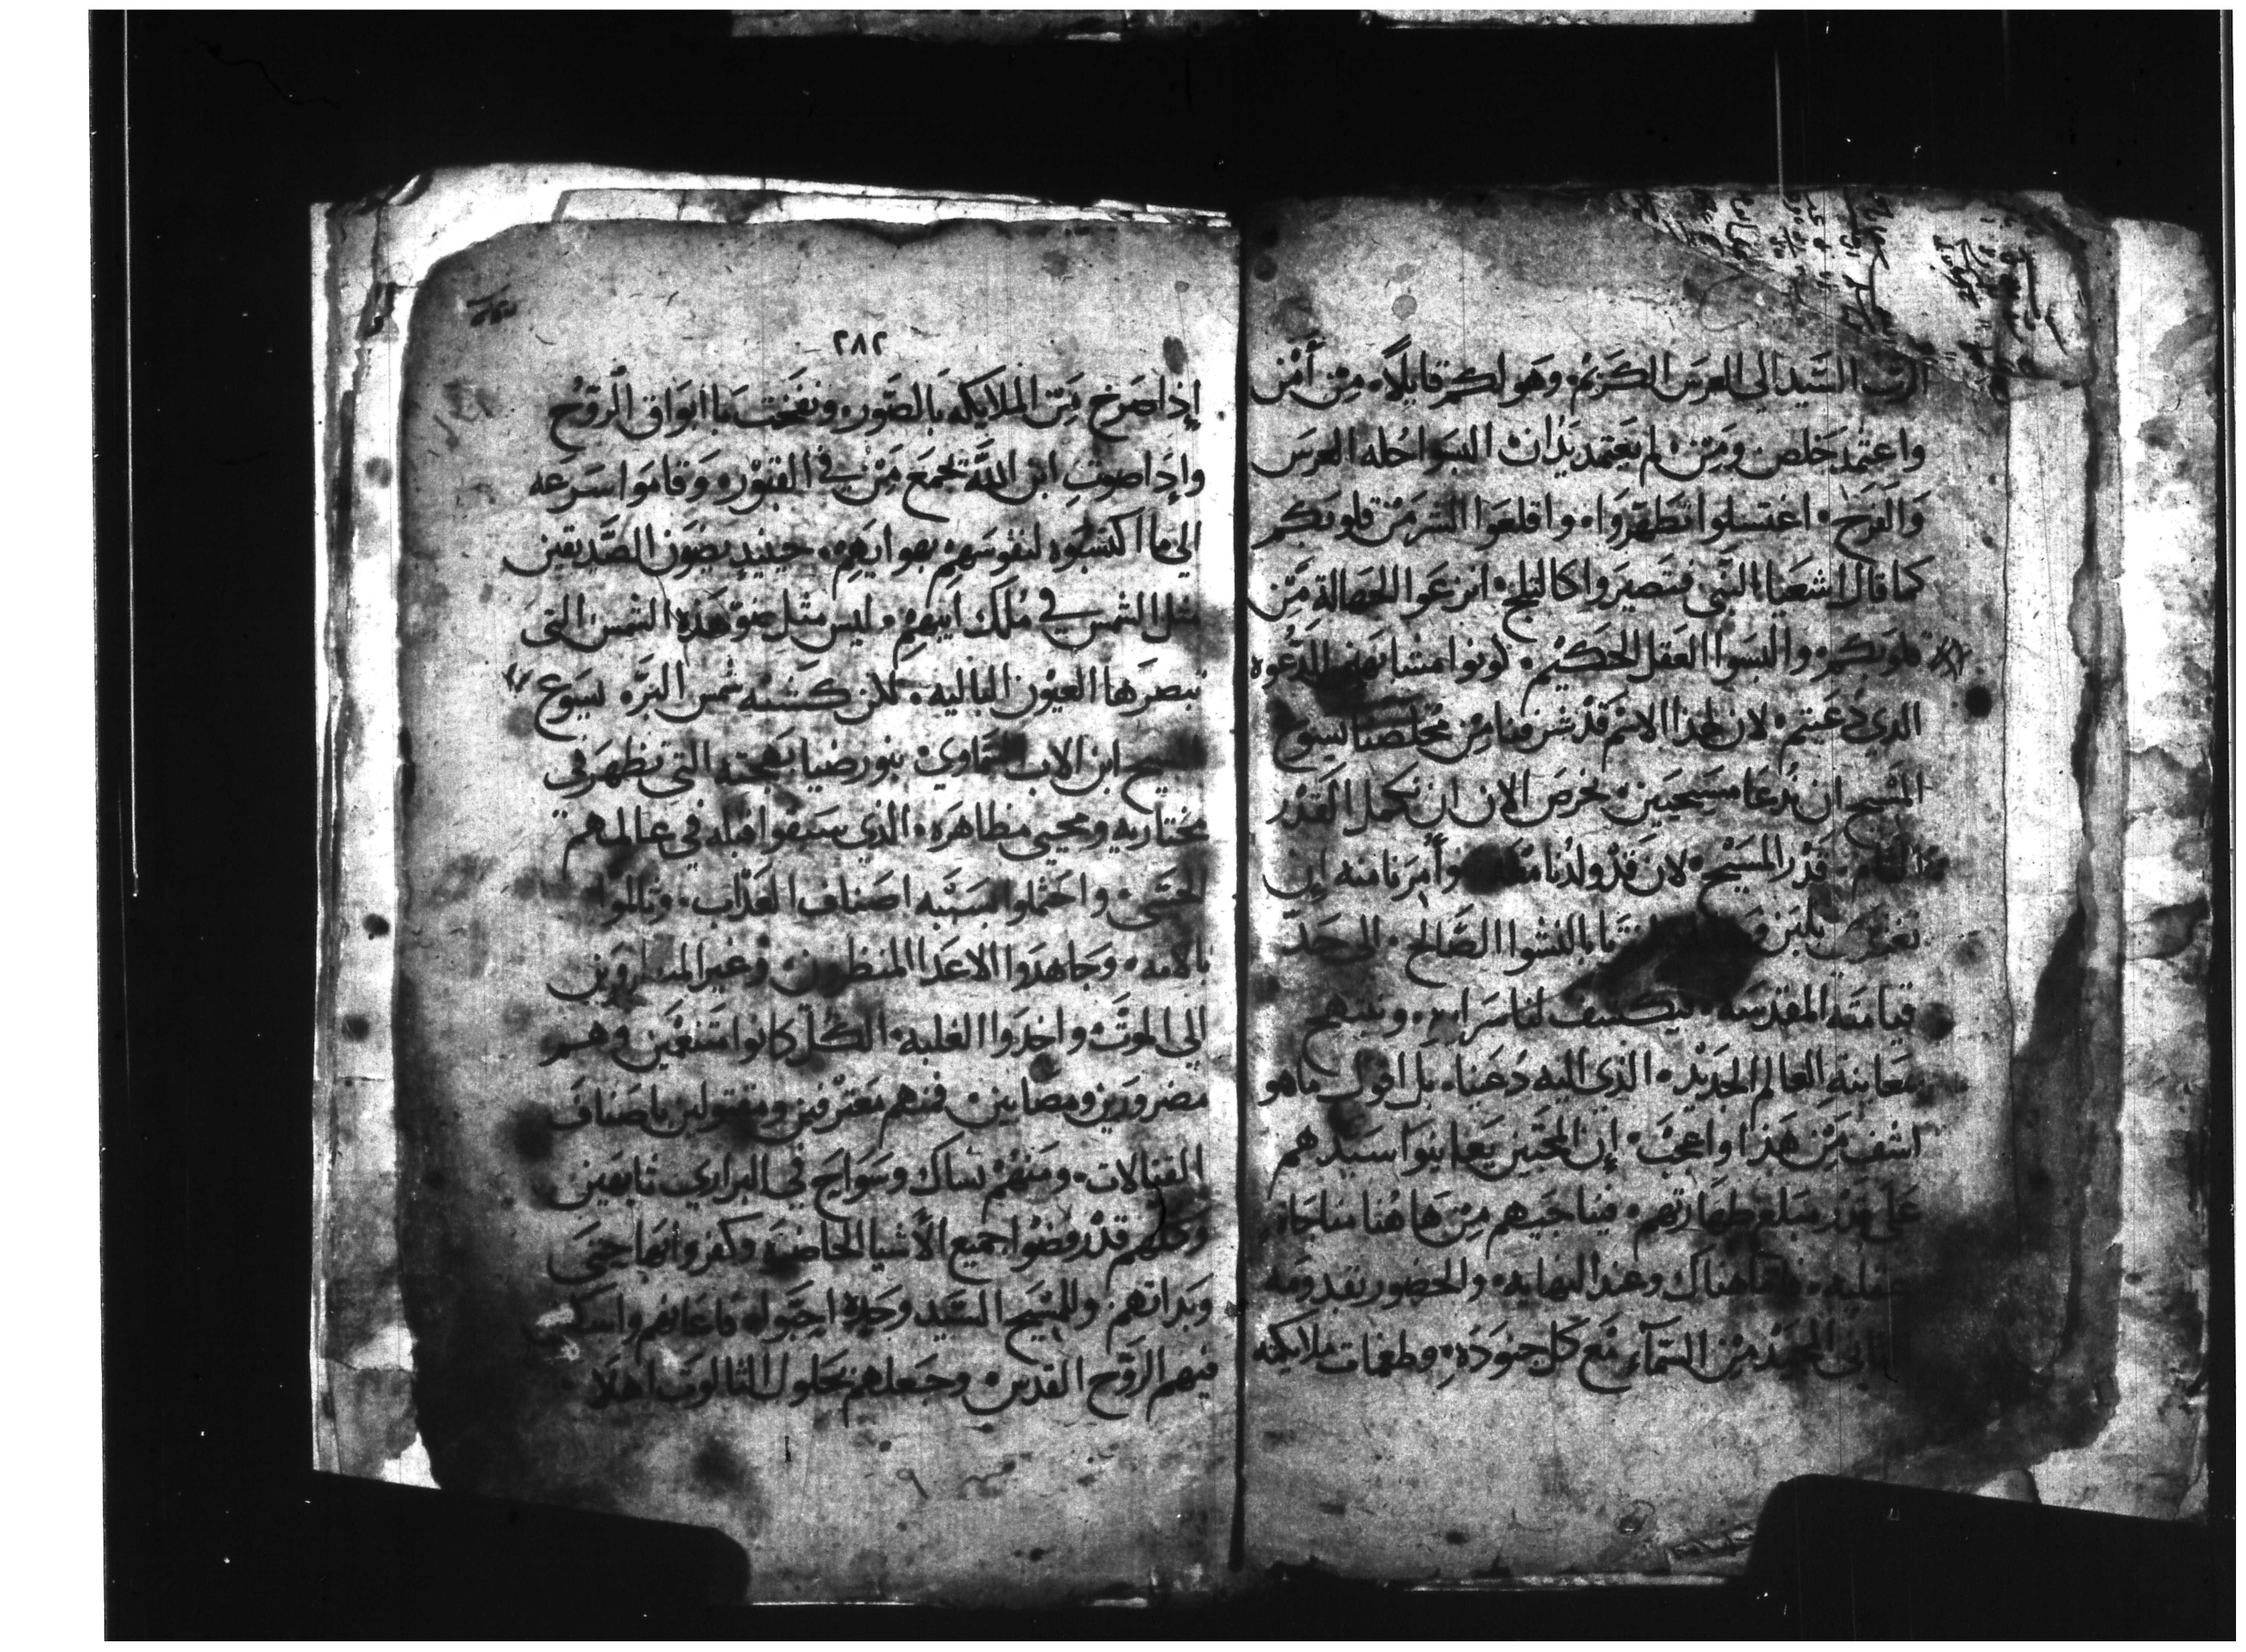 الرب السيد الي العرس الكريم. وهو لكم قايلاً. من أمن
واعتمد خلص ومن لم يعتمد يدان البسوا حله العرس
والفرح. اغتسلوا تطهروا. واقلعوا الشر من قلوبكم
كما قال اشعيا النبي فتصيروا كالثلج. انزعوا الجهالة من
قلوبكم. والبسوا العقل الحكيم. كونوا مشابهين للدعوه
الذي دعيتم. لان هذا الاسم قد شرفنا من مخلصنا يسوع
المسيح ان ندعا مسيحيين. نحرص الان ان نكمل القدر
التام. قدر المسيح. لان قد ولدنا وأمرنا منه ان
بلبن بالنشوا الصالح. الي حد
قيامته المقدسه. ليكشف لنا سرايره. ونبتهج
بمعاينة العالم الجديد. الذي اليه دعينا. بل اقول ماهو
اشف من هذا واعجب. إن المحبين يعاينوا سيدهم
علي قدر مبلغ طهارتهم. فيناجيهم من هاهنا مناجاه
عقليه. فاما هناك وعند النهايه. والحضور بقدومه
المجيد من السمآء مع كل جنوده. وطغمات ملايكته
٢٨٢
إذا صرخ الملايكه بالصور. ونفخت باابواق الروح
وإذا صوت ابن الله تجمع من في القبور. وقاموا بسرعه
الي ما اكتسبوه لنفوسهم بهواهم. حينيذ يضون الصديقين
مثل الشمس في ملك ابيهم. وليس مثل ضو هذه الشمس التي
تبصرها العيون الباليه. لكن كشبه شمس البر. يسوع
المسيح ابن الاب السماوي. بنور ضيا بهجته التي تظهر في
مختاريه ومحبي مظاهره. الذي سبقوا قبله في عالمهم
الحسي. واحتملوا بسببه اصناف العذاب. وتالموا
بالامه. وجاهدوا الاعدا المنظورين. وغير المنظورين
الي الموت. واخدوا الغلبه. الكل كانوا متنعمين وهم
مضرورين ومصابين. فمنهم معترفين ومقتولين باصناف
القتالات. ومنهم نساك وسواح في البراري تايهين
وكلهم قد رفضوا جميع الأشيا الحاضره وكفروا بها حتي
وبذاتهم. والمسيح السيد وحده احبوا. فاعانهم واسكن
فيهم الروح القدس. وجعلهم لحلول الثالوت اهلا